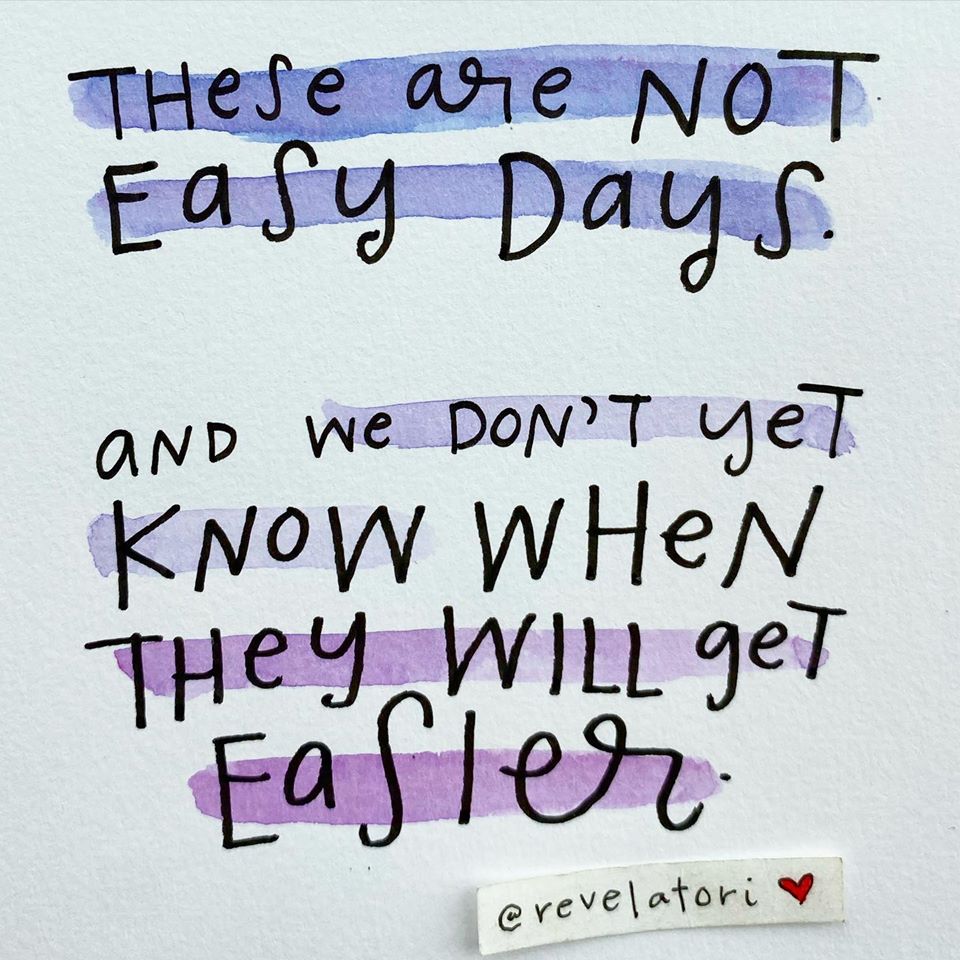 THese are NOT
Easy Days.
aND we DON'T yeT
KNOW WHeN
THey WILL geT
EasIer.
@revelatori